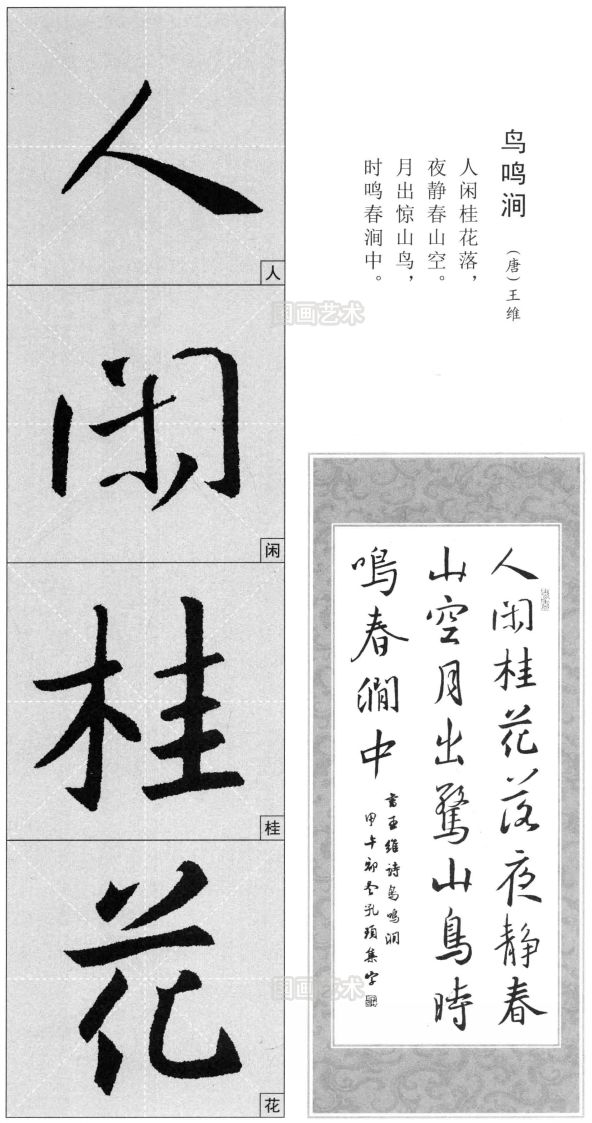 鸟鸣涧
（唐）王维
人闲桂花落，
夜静春山空。
月出惊山鸟，
时鸣春涧中。
人
人
闲
闲
桂
桂
花
花
国画艺术
国画艺术
人闲桂花落夜静春
山空月出驚山鳥時
鳴春澗中
书王维诗鸟鸣涧